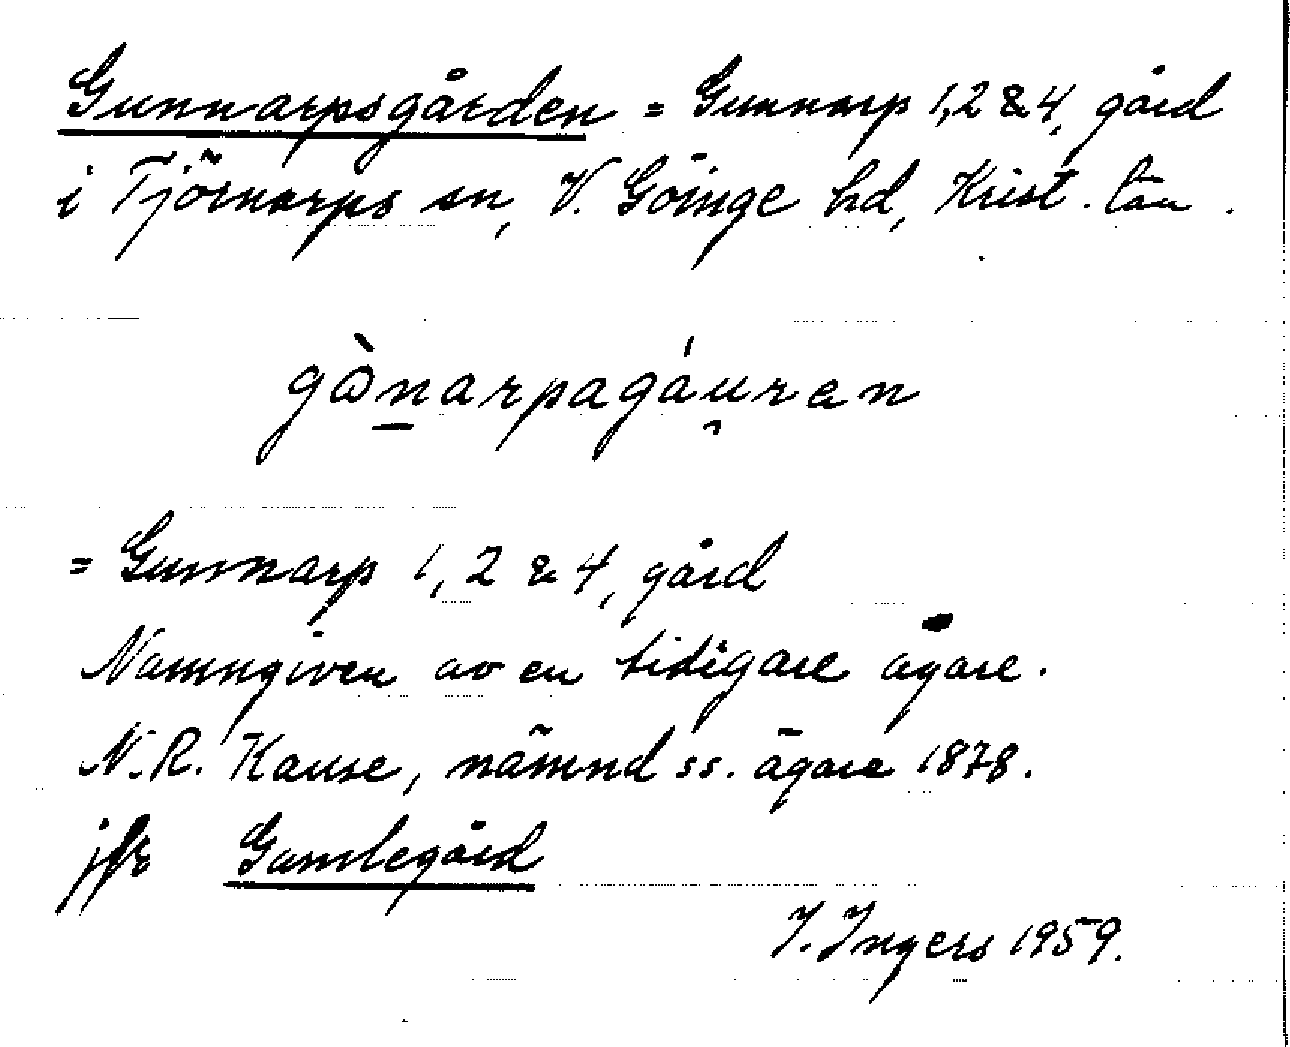 Gunnarpsgården = Gunnarp 1,2 & 4, gård
i Tjörnarps sn, V. Göinge hd, Krist. län.
gὼn̲arpagáu̯ran
= Gunnarp 1, 2 & 4, gård
Namngiven av en tidigare ägare.
N.R. Kause, nämnd ss. ägare 1878.
jfr Gamlegård
I. Ingers 1959.